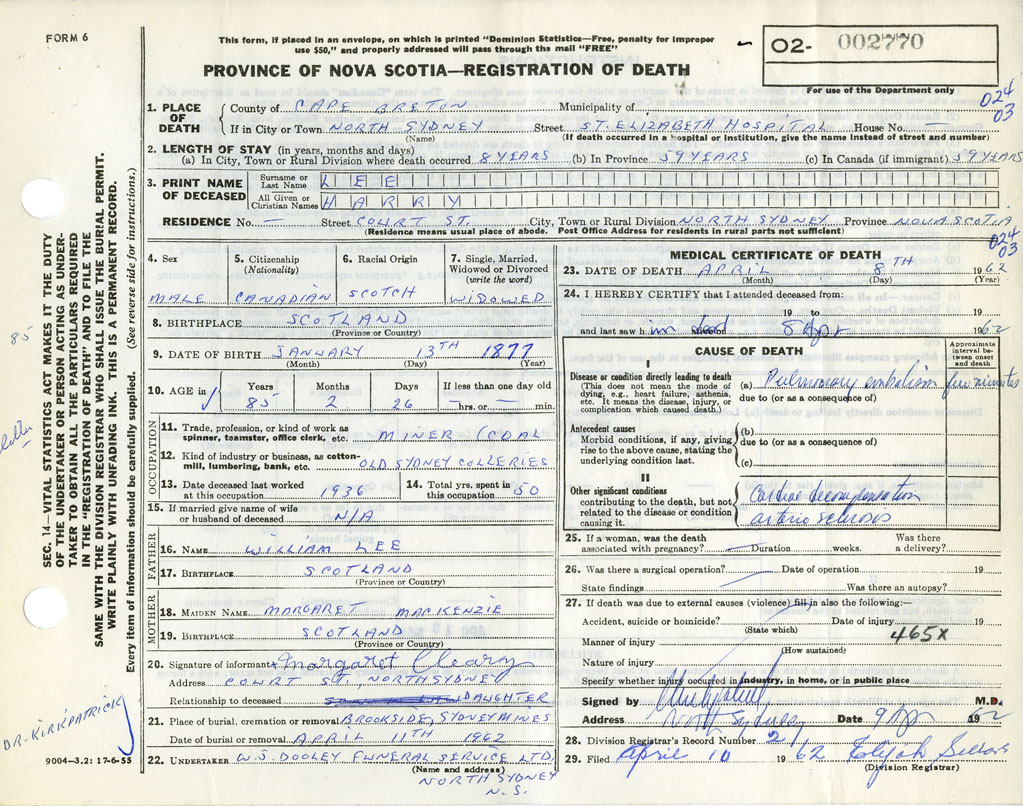 FORM 6
This form, if placed in an envelope, on which is printed "Dominion Statistics—Free, penalty for improper
use $50," and properly addressed will pass through the mail "FREE"
PROVINCE OF NOVA SCOTIA—REGISTRATION OF DEATH
02- 002770
For use of the Department only
024
03
SEC. 14—VITAL STATISTICS ACT MAKES IT THE DUTY
OF THE UNDERTAKER OR PERSON ACTING AS UNDER-
TAKER TO OBTAIN ALL THE PARTICULARS REQUIRED
IN THE "REGISTRATION OF DEATH" AND TO FILE THE
SAME WITH THE DIVISION REGISTRAR WHO SHALL ISSUE THE BURIAL PERMIT.
WRITE PLAINLY WITH UNFADING INK. THIS IS A PERMANENT RECORD.
Every item of information should be carefully supplied. (See reverse side for instructions.)
85
DR. KIRKPATRICK
9004—3.2: 17-6-55
1. PLACE OF DEATH County of CAPE BRETON Municipality of
If in City or Town NORTH SYDNEY Street ST. ELIZABETH HOSPITAL House No. —
(Name) (If death occurred in a hospital or institution, give the name instead of street and number)
2. LENGTH OF STAY (in years, months and days)
(a) In City, Town or Rural Division where death occurred 8 YEARS (b) In Province 59 YEARS (c) In Canada (if immigrant) 59 YEARS
3. PRINT NAME OF DECEASED Surname or Last Name LEE
All Given or Christian Names HARRY
RESIDENCE No. — Street COURT ST. City, Town or Rural Division NORTH SYDNEY Province NOVA SCOTIA
(Residence means usual place of abode. Post Office Address for residents in rural parts not sufficient)
024
03
4. Sex 5. Citizenship (Nationality) 6. Racial Origin 7. Single, Married, Widowed or Divorced (write the word)
MALE CANADIAN SCOTCH WIDOWED
8. BIRTHPLACE SCOTLAND
(Province or Country)
9. DATE OF BIRTH JANUARY 13TH 1877
(Month) (Day) (Year)
10. AGE in Years Months Days If less than one day old
85 2 26 — hrs. or — min.
OCCUPATION
11. Trade, profession, or kind of work as
spinner, teamster, office clerk, etc. MINER (COAL
12. Kind of industry or business, as cotton-
mill, lumbering, bank, etc. OLD SYDNEY COLLERIES
13. Date deceased last worked
at this occupation 1936 14. Total yrs. spent in this occupation 50
15. If married give name of wife
or husband of deceased N/A
FATHER
16. NAME WILLIAM LEE
17. BIRTHPLACE SCOTLAND
(Province or Country)
MOTHER
18. MAIDEN NAME MARGARET MACKENZIE
19. BIRTHPLACE SCOTLAND
(Province or Country)
20. Signature of informant x Margaret Cleary
Address COURT ST, NORTH SYDNEY
Relationship to deceased DAUGHTER
21. Place of burial, cremation or removal BROOKSIDE, SYDNEY MINES
Date of burial or removal APRIL 11TH 1962
22. UNDERTAKER W.S. DOOLEY FUNERAL SERVICE LTD.
(Name and address)
NORTH SYDNEY
N.S.
MEDICAL CERTIFICATE OF DEATH
23. DATE OF DEATH APRIL 8TH 1962
(Month) (Day) (Year)
24. I HEREBY CERTIFY that I attended deceased from:
19 to 19
and last saw him dead 8 Apr 1962
CAUSE OF DEATH
Approximate interval between onset and death
I
Disease or condition directly leading to death
(This does not mean the mode of
dying, e.g., heart failure, asthenia,
etc. It means the disease, injury, or
complication which caused death.)
(a) Pulmonary embolism few minutes
due to (or as a consequence of)
Antecedent causes
Morbid conditions, if any, giving
rise to the above cause, stating the
underlying condition last.
(b)
due to (or as a consequence of)
(c)
II
Other significant conditions
contributing to the death, but not
related to the disease or condition
causing it.
Cardiac decompensation
arterio sclerosis
25. If a woman, was the death
associated with pregnancy? — Duration weeks. Was there a delivery?
26. Was there a surgical operation? Date of operation 19
State findings Was there an autopsy?
27. If death was due to external causes (violence) fill in also the following:—
Accident, suicide or homicide? Date of injury 19
(State which)
465X
Manner of injury
(How sustained)
Nature of injury
Specify whether injury occurred in industry, in home, or in public place
Signed by M.D.
Address North Sydney Date 9 Apr 1962
28. Division Registrar's Record Number 21
29. Filed April 10 1962 Elijah
(Division Registrar)